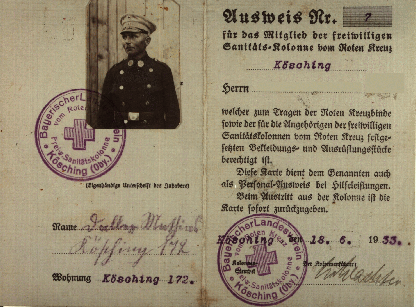 BayerischerLandesverein
vom Roten Kreuz
Freiw. Sanitätskolonne
Kösching (Oby.)
(Eigenhändige Unterschrift des Inhabers)
Name Mathias
Kösching 172
Wohnung Kösching 172.
Ausweis Nr. 7
für das Mitglied der freiwilligen
Sanitäts-Kolonne vom Roten Kreuz
Kösching
Herrn
welcher zum Tragen der Roten Kreuzbinde
sowie der für die Angehörigen der freiwilligen
Sanitätskolonnen vom Roten Kreuz festge-
setzten Bekleidungs- und Ausrüstungsstücke
berechtigt ist.
Diese Karte dient dem Genannten auch
als Personal-Ausweis bei Hilfeleistungen.
Beim Austritt aus der Kolonne ist die
Karte sofort zurückzugeben.
Kösching den 18.6. 1933.
BayerischerLandesverein
vom Roten Kreuz
Freiw. Sanitätskolonne
Kösching (Oby.)